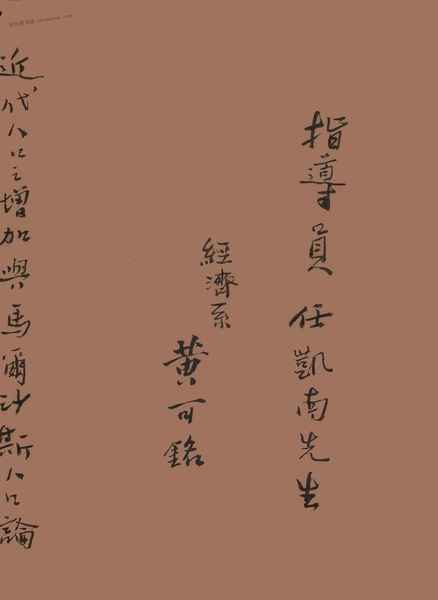 指導員 任凱南先生
經濟系
黄可銘
近代人口之增加與馬爾沙斯人口論